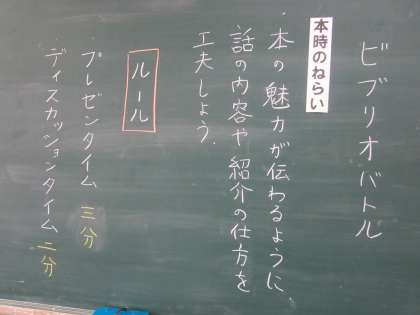 ビブリオバトル
本時のねらい
・本の魅力が伝わるように
話の内容や紹介の仕方を
工夫しよう.
ルール
プレゼンタイム 三分
ディスカッションタイム 二分